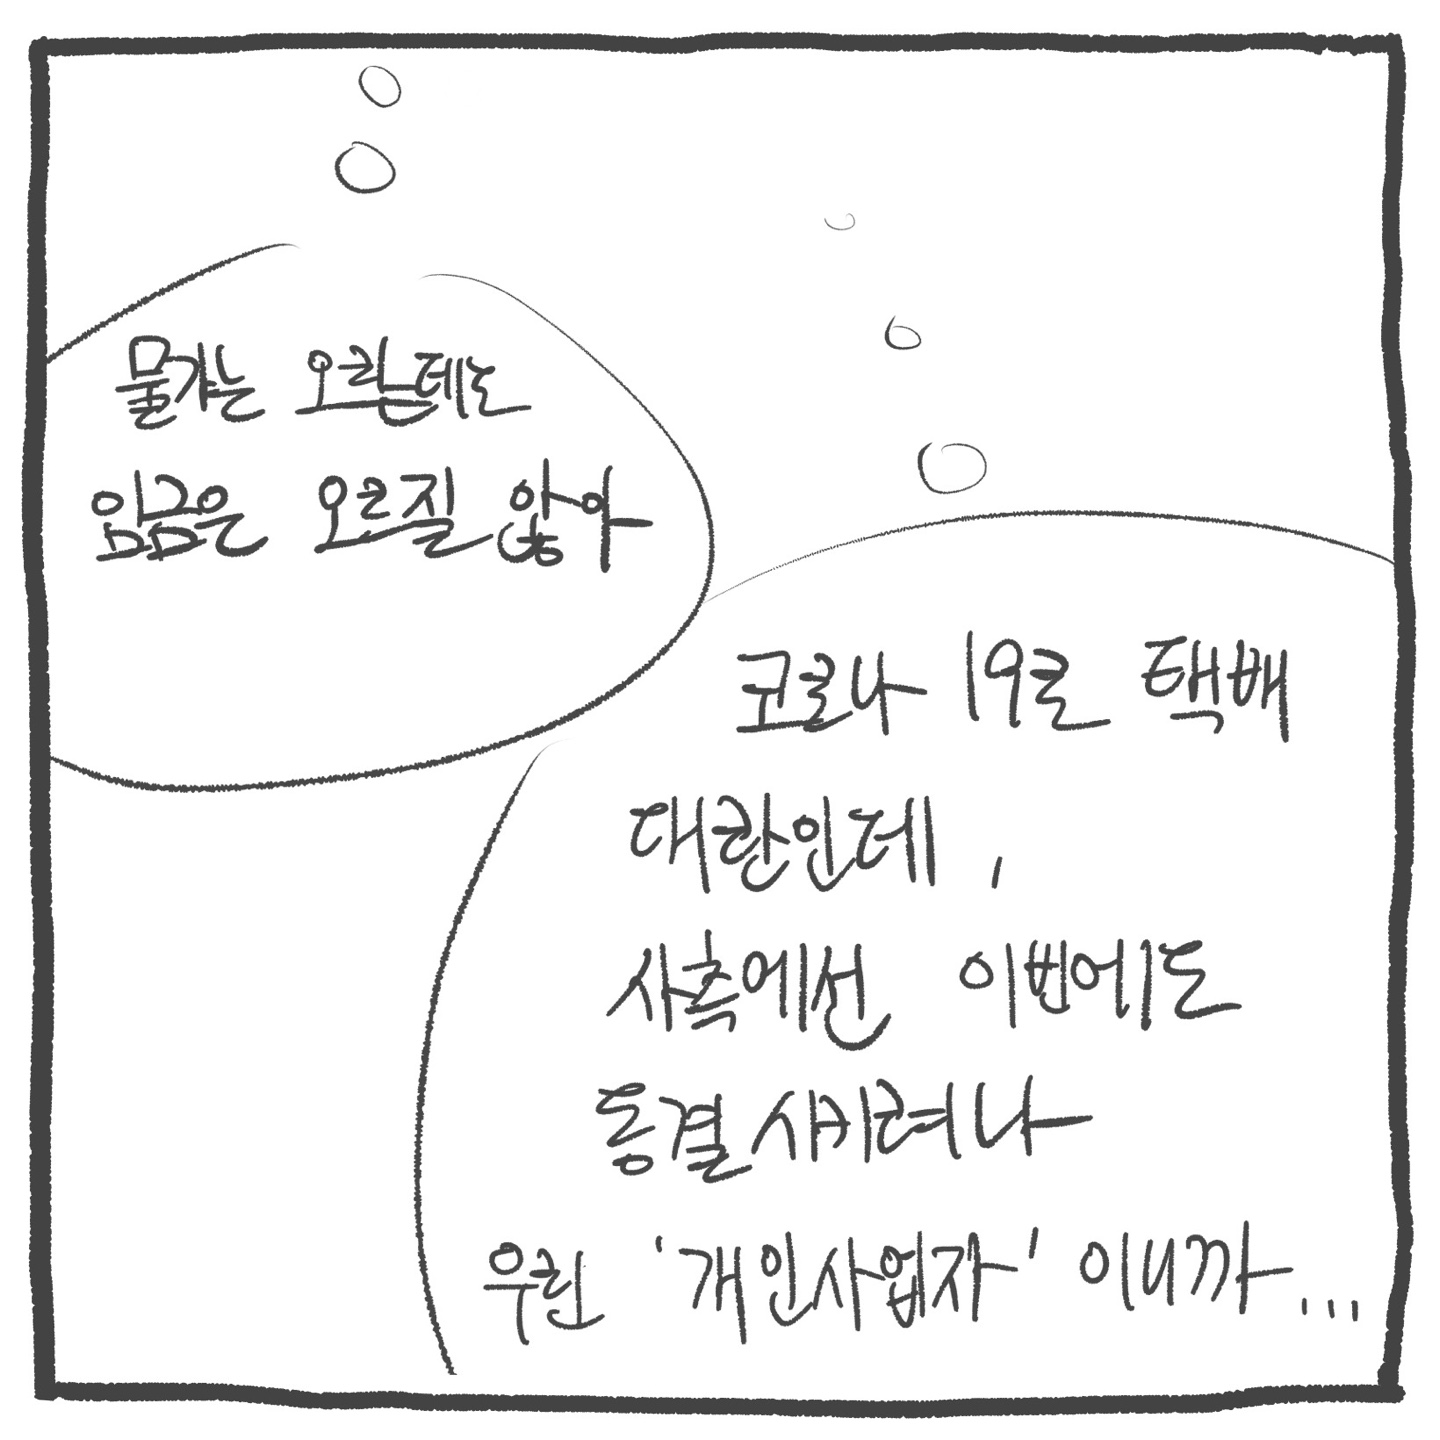 물가는 오르는데도
임금은 오르질 않아
코로나 19로 택배
대란인데,
사측에선 이번에도
동결시키려나
우린 '개인사업자' 이니까...